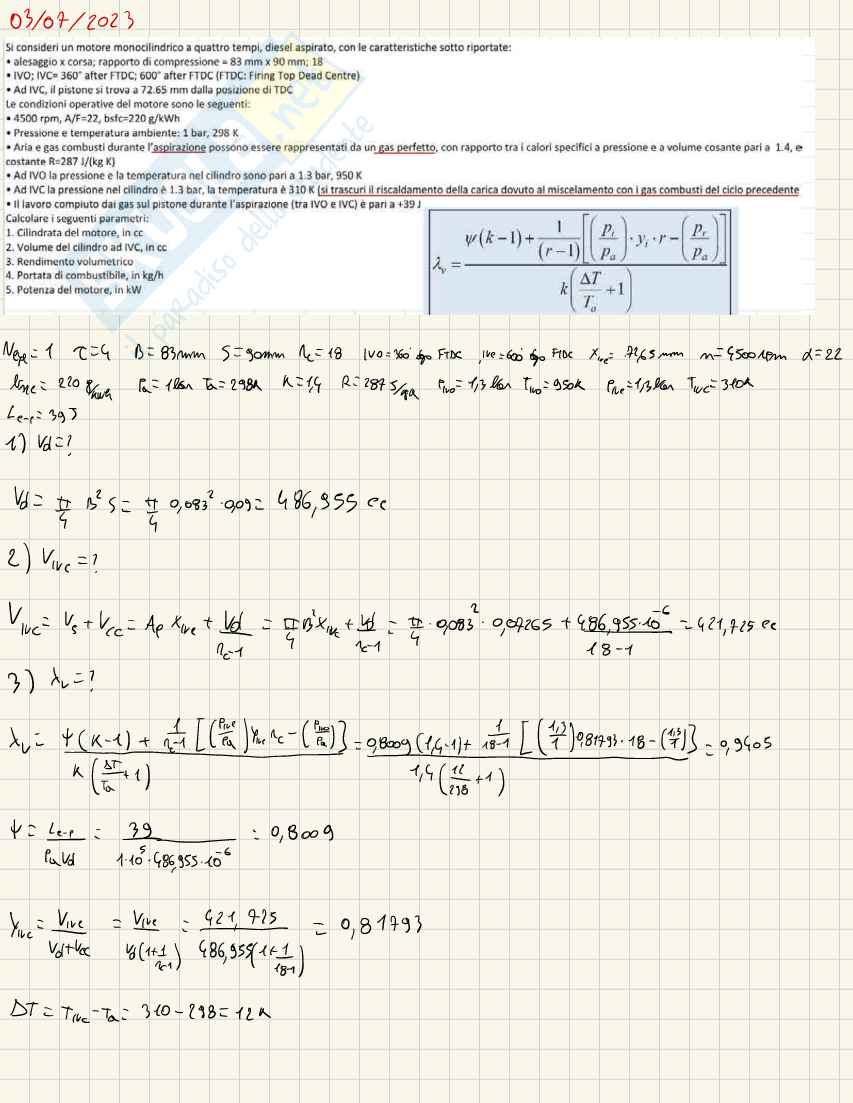 03/07/2023
Si consideri un motore monocilindrico a quattro tempi, diesel aspirato, con le caratteristiche sotto riportate:
• alesaggio x corsa; rapporto di compressione = 83 mm x 90 mm; 18
• IVO; IVC= 360° after FTDC; 600° after FTDC (FTDC: Firing Top Dead Centre)
• Ad IVC, il pistone si trova a 72.65 mm dalla posizione di TDC
Le condizioni operative del motore sono le seguenti:
• 4500 rpm, A/F=22, bsfc=220 g/kWh
• Pressione e temperatura ambiente: 1 bar, 298 K
• Aria e gas combusti durante l'aspirazione possono essere rappresentati da un gas perfetto, con rapporto tra i calori specifici a pressione e a volume cosante pari a 1.4, e
costante R=287 J/(kg K)
• Ad IVO la pressione e la temperatura nel cilindro sono pari a 1.3 bar, 950 K
• Ad IVC la pressione nel cilindro è 1.3 bar, la temperatura è 310 K (si trascuri il riscaldamento della carica dovuto al miscelamento con i gas combusti del ciclo precedente
• Il lavoro compiuto dai gas sul pistone durante l'aspirazione (tra IVO e IVC) è pari a +39 J
Calcolare i seguenti parametri:
1. Cilindrata del motore, in cc
2. Volume del cilindro ad IVC, in cc
3. Rendimento volumetrico
4. Portata di combustibile, in kg/h
5. Potenza del motore, in kW
λv = ψ(k-1) + 1/(r-1) [(pi/pa) · yi · r - (pr/pa)] / k(ΔT/To + 1)
τ=4 B=83mm S=90mm rc=18 IVO=360° dopo FTDC, IVC=600° dopo FTDC Xivc=72,65mm n=4500rpm α=22
220 g/kWh Pa=1bar Ta=298K K=1,4 Pivo=1,3bar Tivo=950K Pivc=1,3bar Tivc=310K
Le-p=39J
1) Vd=?
Vd = π/4 B² S = π/4 0,083² · 0,09 = 486,955 cc
2) Vivc=?
Vivc = Vs + Vcc = Ap Xivc + Vd/rc-1 = π/4 B² Xivc + Vd/rc-1 = π/4 · 0,083² · 0,07265 + 486,955·10⁻⁶/18-1 = 421,725 cc
3) λv=?
λv = ψ(K-1) + 1/rc-1 [(Pivc/Pa) yivc rc - (Pivo/Pa)] / K(ΔT/Ta + 1) = 0,8009(1,4-1) + 1/18-1 [(1,3/1) 0,81793 · 18 - (1,3/1)] / 1,4(12/298 + 1) = 0,9405
ψ = Le-p/Pa Vd = 39/1·10⁵·486,955·10⁻⁶ = 0,8009
yivc = Vivc/Vd+Vcc = Vivc/Vd(1+1/rc-1) = 421,725/486,955(1+1/18-1) = 0,81793
ΔT = Tivc - Ta = 310 - 298 = 12K